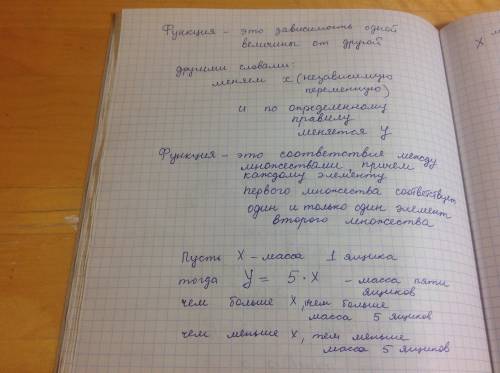 Функция - это зависимость одной
величины от другой
другими словами:
меняем x (независимую
переменную)
и по определенному
правилу
меняется y
Функция - это соответствие между
множествами причем
каждому элементу
первого множества соответствует
один и только один элемент
второго множества
Пусть X - масса 1 ящика
тогда y = 5 · x - масса пяти
ящиков
чем больше X, чем больше
масса 5 ящиков
чем меньше X, тем меньше
масса 5 ящиков
X